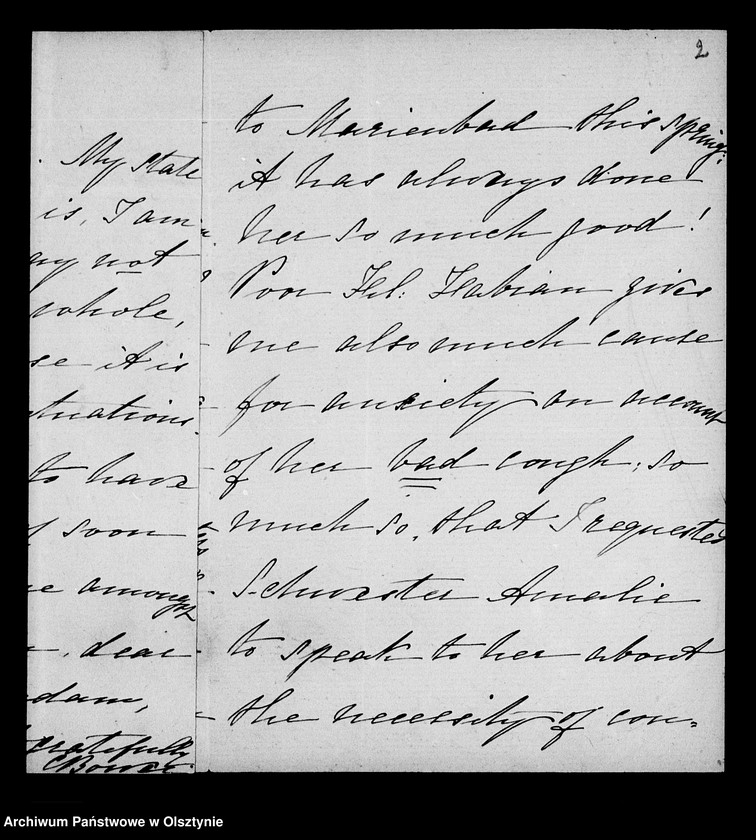 2
My state
is, I am
ny not
whole,
se it is
tuations.
to have
soon
e amongst
, dear
dam,
gratefully
CBower
to Marienbad this spring;
it has always done
her so much good!
Poor Frl: Fabian gives
me also much cause
for anxiety on account
of her bad cough; so
much so, that I requested
Schwester Amalie
to speak to her about
the necessity of con-
Archiwum Państwowe w Olsztynie